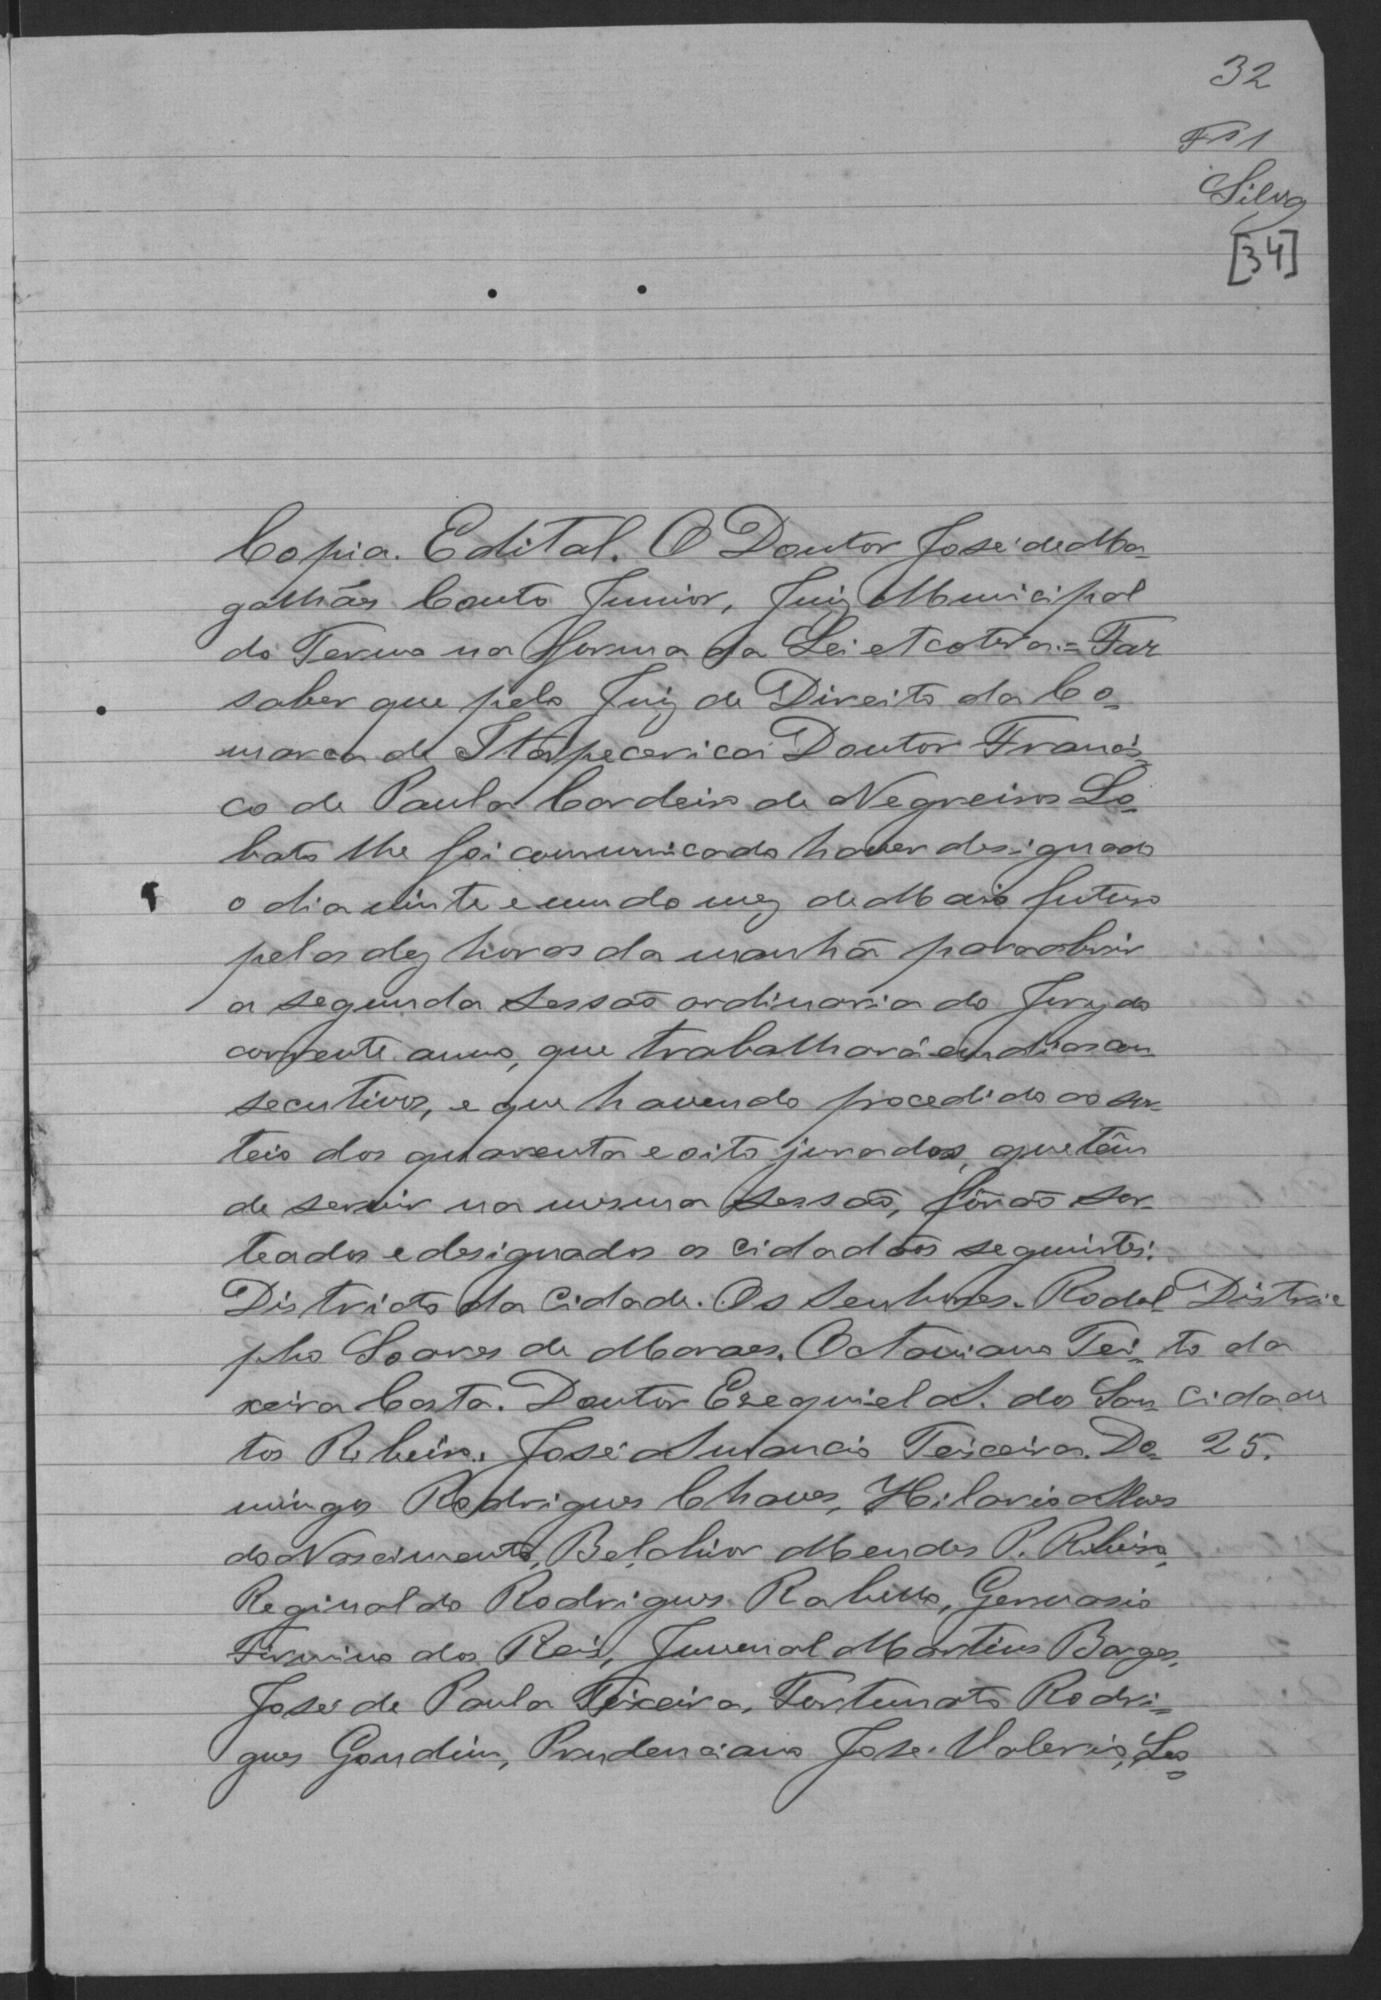 32
Fls 1
Silva
[34]
Copia. Edital. O Doutor José de Ma-
galhães Couto Junior, Juiz Municipal
do Termo na forma da Lei etcetera = Faz
saber que pelo Juiz de Direito da Co-
marca de Itapecerica Doutor Francis-
co de Paula Cordeiro de Negreiros Lo-
bato lhe foi communicado haver designado
o dia vinte e um do mez de Maio futuro
pelas dez horas da manhã para abrir
a segunda sessaõ ordinaria do Jury do
corrente anno, que trabalhará em dias con
secutivos, e que havendo procedido ao sor-
teio dos quarenta e oito jurados, que têm
de servir na mesma sessaõ, fôraõ sor-
teados e designados os cidadãos seguintes:
Districto da Cidade. Os Senhores. Rodol Distric
pho Soares de Moraes. Octaviano Tei- to da
xeira Costa. Doutor Ezequiel A. dos San- Cidade
tos Ribeiro. José Amancio Teixeira. Do- 25.
mingos Rodrigues Chaves, Hilario Alves
do Nascimento, Belchior Mendes P. Ribeiro,
Reginaldo Rodrigues Rabello, Gervasio
Firmino dos Reis, Juvenal Martins Borges,
José de Paula Teixeira, Fortunato Rodri-
gues Gondim, Prudenciano José Valerio, Leo-